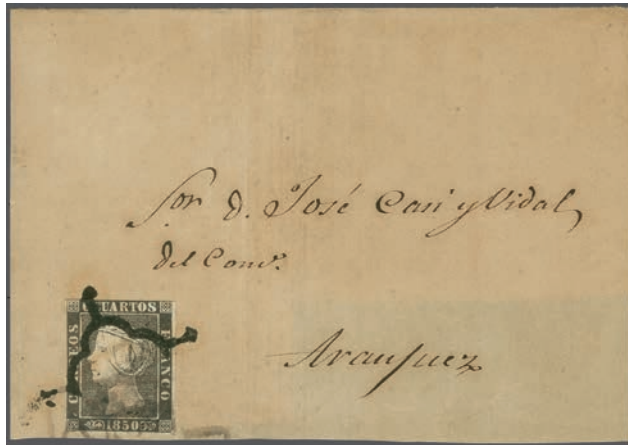 Sor. d. José Cari y Vidal
del Como.
Aranjuez
CUARTOS
CORREOS
FRANCO
1850